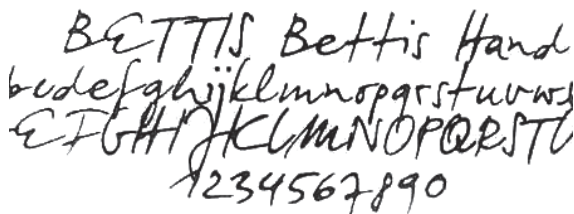 BETTIS Bettis Hand
bcdefghijklmnopqrstuvwx
EFGHIJKLMNOPQRSTU
1234567890